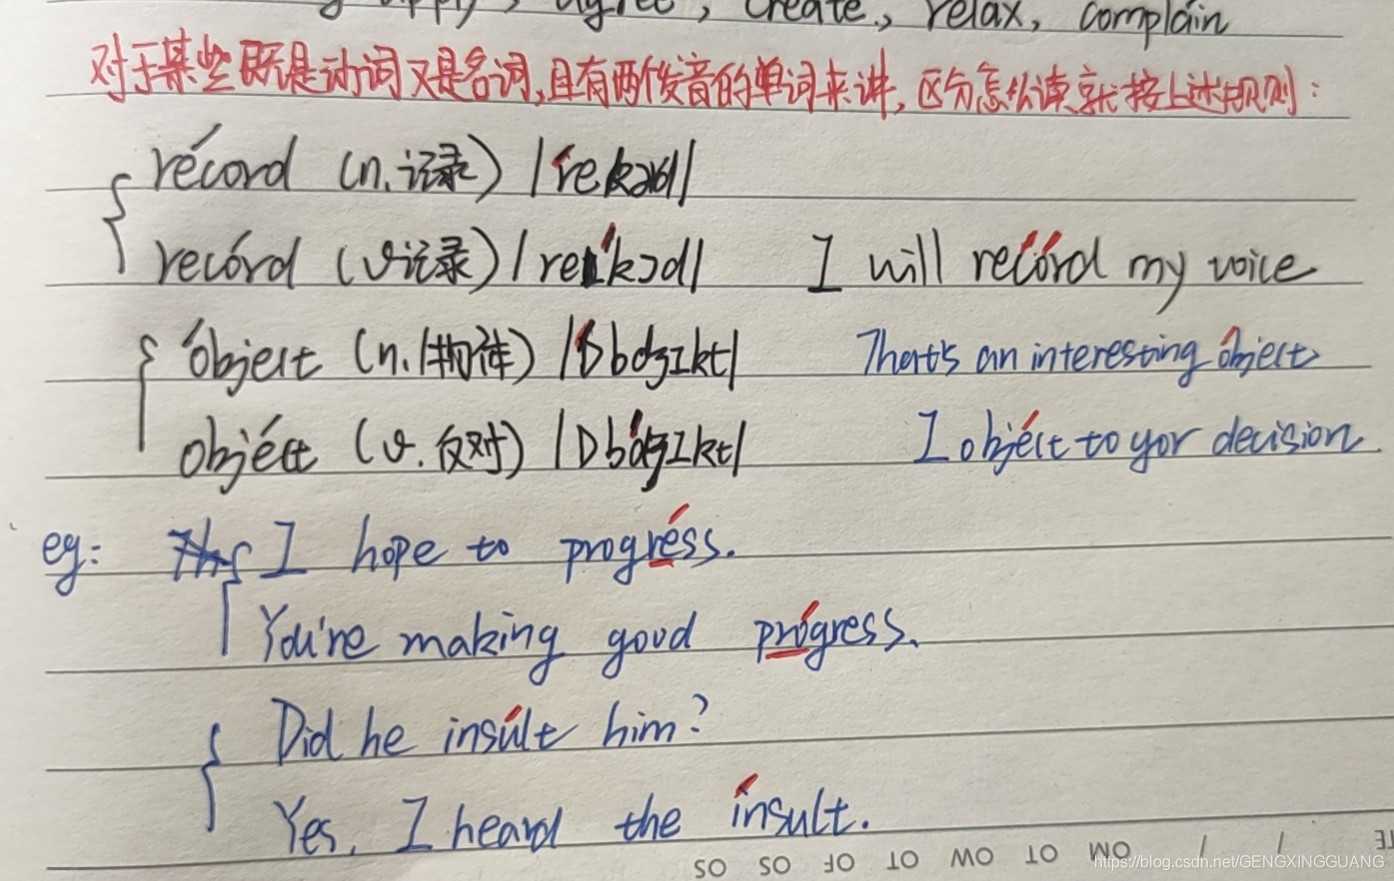 apply, agree, create, relax, complain
对于某些既是动词又是名词,且有两个发音的单词来讲,区分怎么读就按上述规则:
récord (n.记录) /ˈrekɔd/
recórd (v记录) /reˈkɔd/ I will recórd my voice
óbject (n.物件) /ˈɒbdʒɪkt/ That's an interesting óbject
objéct (v.反对) /ɒbˈdʒɪkt/ I objéct to yor decision.
eg: I hope to progréss.
You're making good prógress.
Did he insúlt him?
Yes, I heard the ínsult.
SO SO OF OT WO TO MO / / TE
https://blog.csdn.net/GENGXINGGUANG